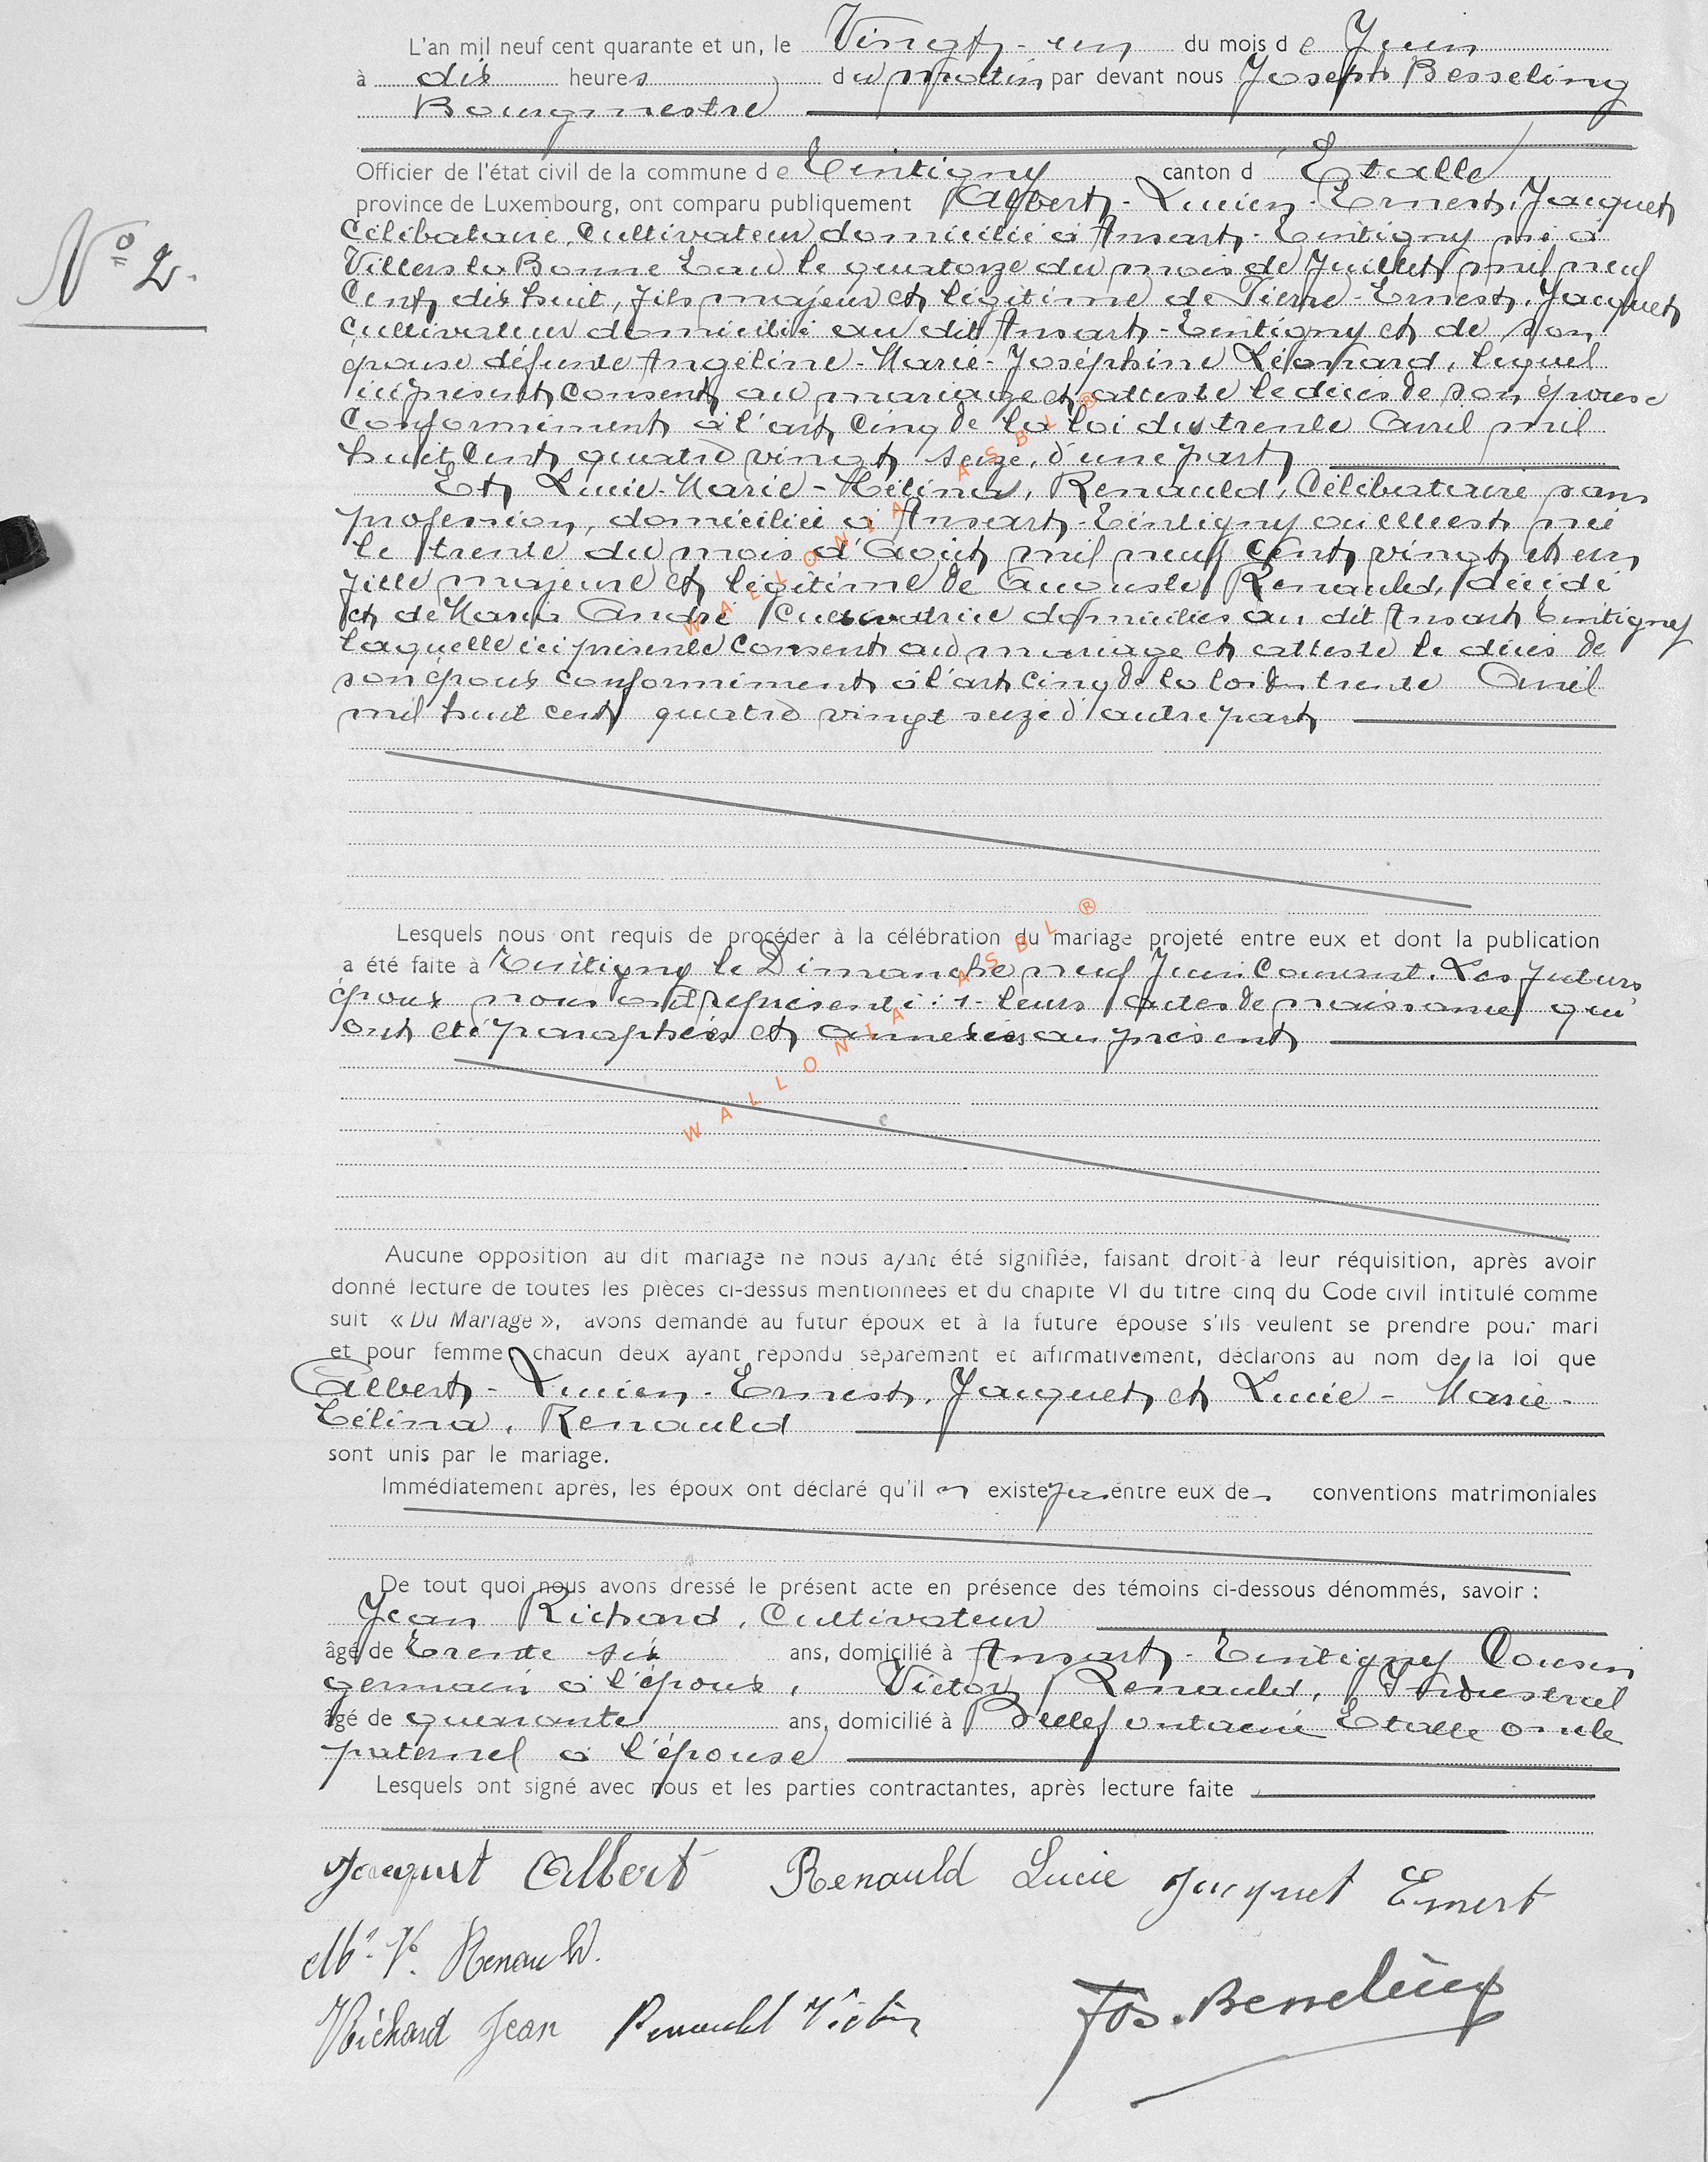 L'an mil neuf cent quarante et un, le Vingt-un du mois de Juin
à dix heures du Matin par devant nous Joseph Besseling
Bourgmestre
Officier de l'état civil de la commune de Tintigny canton d Etalle
province de Luxembourg, ont comparu publiquement Albert-Lucien-Ernest, Jacquet
N° 2.
Célibataire, Cultivateur domicilié à Ansart-Tintigny né à
Villers la Bonne Eau le quatorze du mois de Juillet mil neuf
Cent dix huit, fils majeur et légitime de Pierre-Ernest, Jacquet
Cultivateur domicilié au dit Ansart-Tintigny et de son
épouse défunte Angéline-Marie-Joséphine Léonard, lequel
ici présent consent au mariage et atteste le décès de son épouse
Conformément à l'art cinq de la loi du trente Avril mil
huit Cent quatre vingt seize, d'une part
Et Lucie-Marie-Hélina, Renauld, Célibataire sans
profession, domiciliée à Ansart-Tintigny où elle est née
le trente du mois d'Août mil neuf Cent vingt et un
fille majeure et légitime de Auguste Renauld, décédé
et de Maria André Cultivatrice domiciliée au dit Ansart Tintigny
laquelle ici présente consent au mariage et atteste le décès de
son époux conformément à l'art cinq de la loi du trente Avril
mil huit cent quatre vingt seize d'autre part
Lesquels nous ont requis de procéder à la célébration du mariage projeté entre eux et dont la publication
a été faite à Tintigny le Dimanche neuf Juin Courant. Les futurs
époux nous ont représenté: 1- leurs actes de naissance qui
ont été paraphés et annexés au présent
Aucune opposition au dit mariage ne nous ayant été signifiée, faisant droit à leur réquisition, après avoir
donné lecture de toutes les pièces ci-dessus mentionnées et du chapite VI du titre cinq du Code civil intitulé comme
suit « Du Mariage », avons demandé au futur époux et à la future épouse s'ils veulent se prendre pour mari
et pour femme, chacun deux ayant répondu séparément et affirmativement, déclarons au nom de la loi que
Albert-Lucien-Ernest, Jacquet et Lucie-Marie-
Célina, Renauld
sont unis par le mariage.
Immédiatement après, les époux ont déclaré qu'il n existe pas entre eux de conventions matrimoniales
De tout quoi nous avons dressé le présent acte en présence des témoins ci-dessous dénommés, savoir :
Jean Richard, Cultivateur
âgé de Trente six ans, domicilié à Ansart-Tintigny Cousin
germain à l'époux, Victor Renauld, Industriel
âgé de quarante ans, domicilié à Bellefontaine Etalle oncle
paternel à l'épouse
Lesquels ont signé avec nous et les parties contractantes, après lecture faite
Jacquet Albert Renauld Lucie Jacquet Ernest
Renauld.
Richard Jean Renauld Victor Jos. Besseling
WALLONIA ASBL ®
WALLONIA ASBL ®